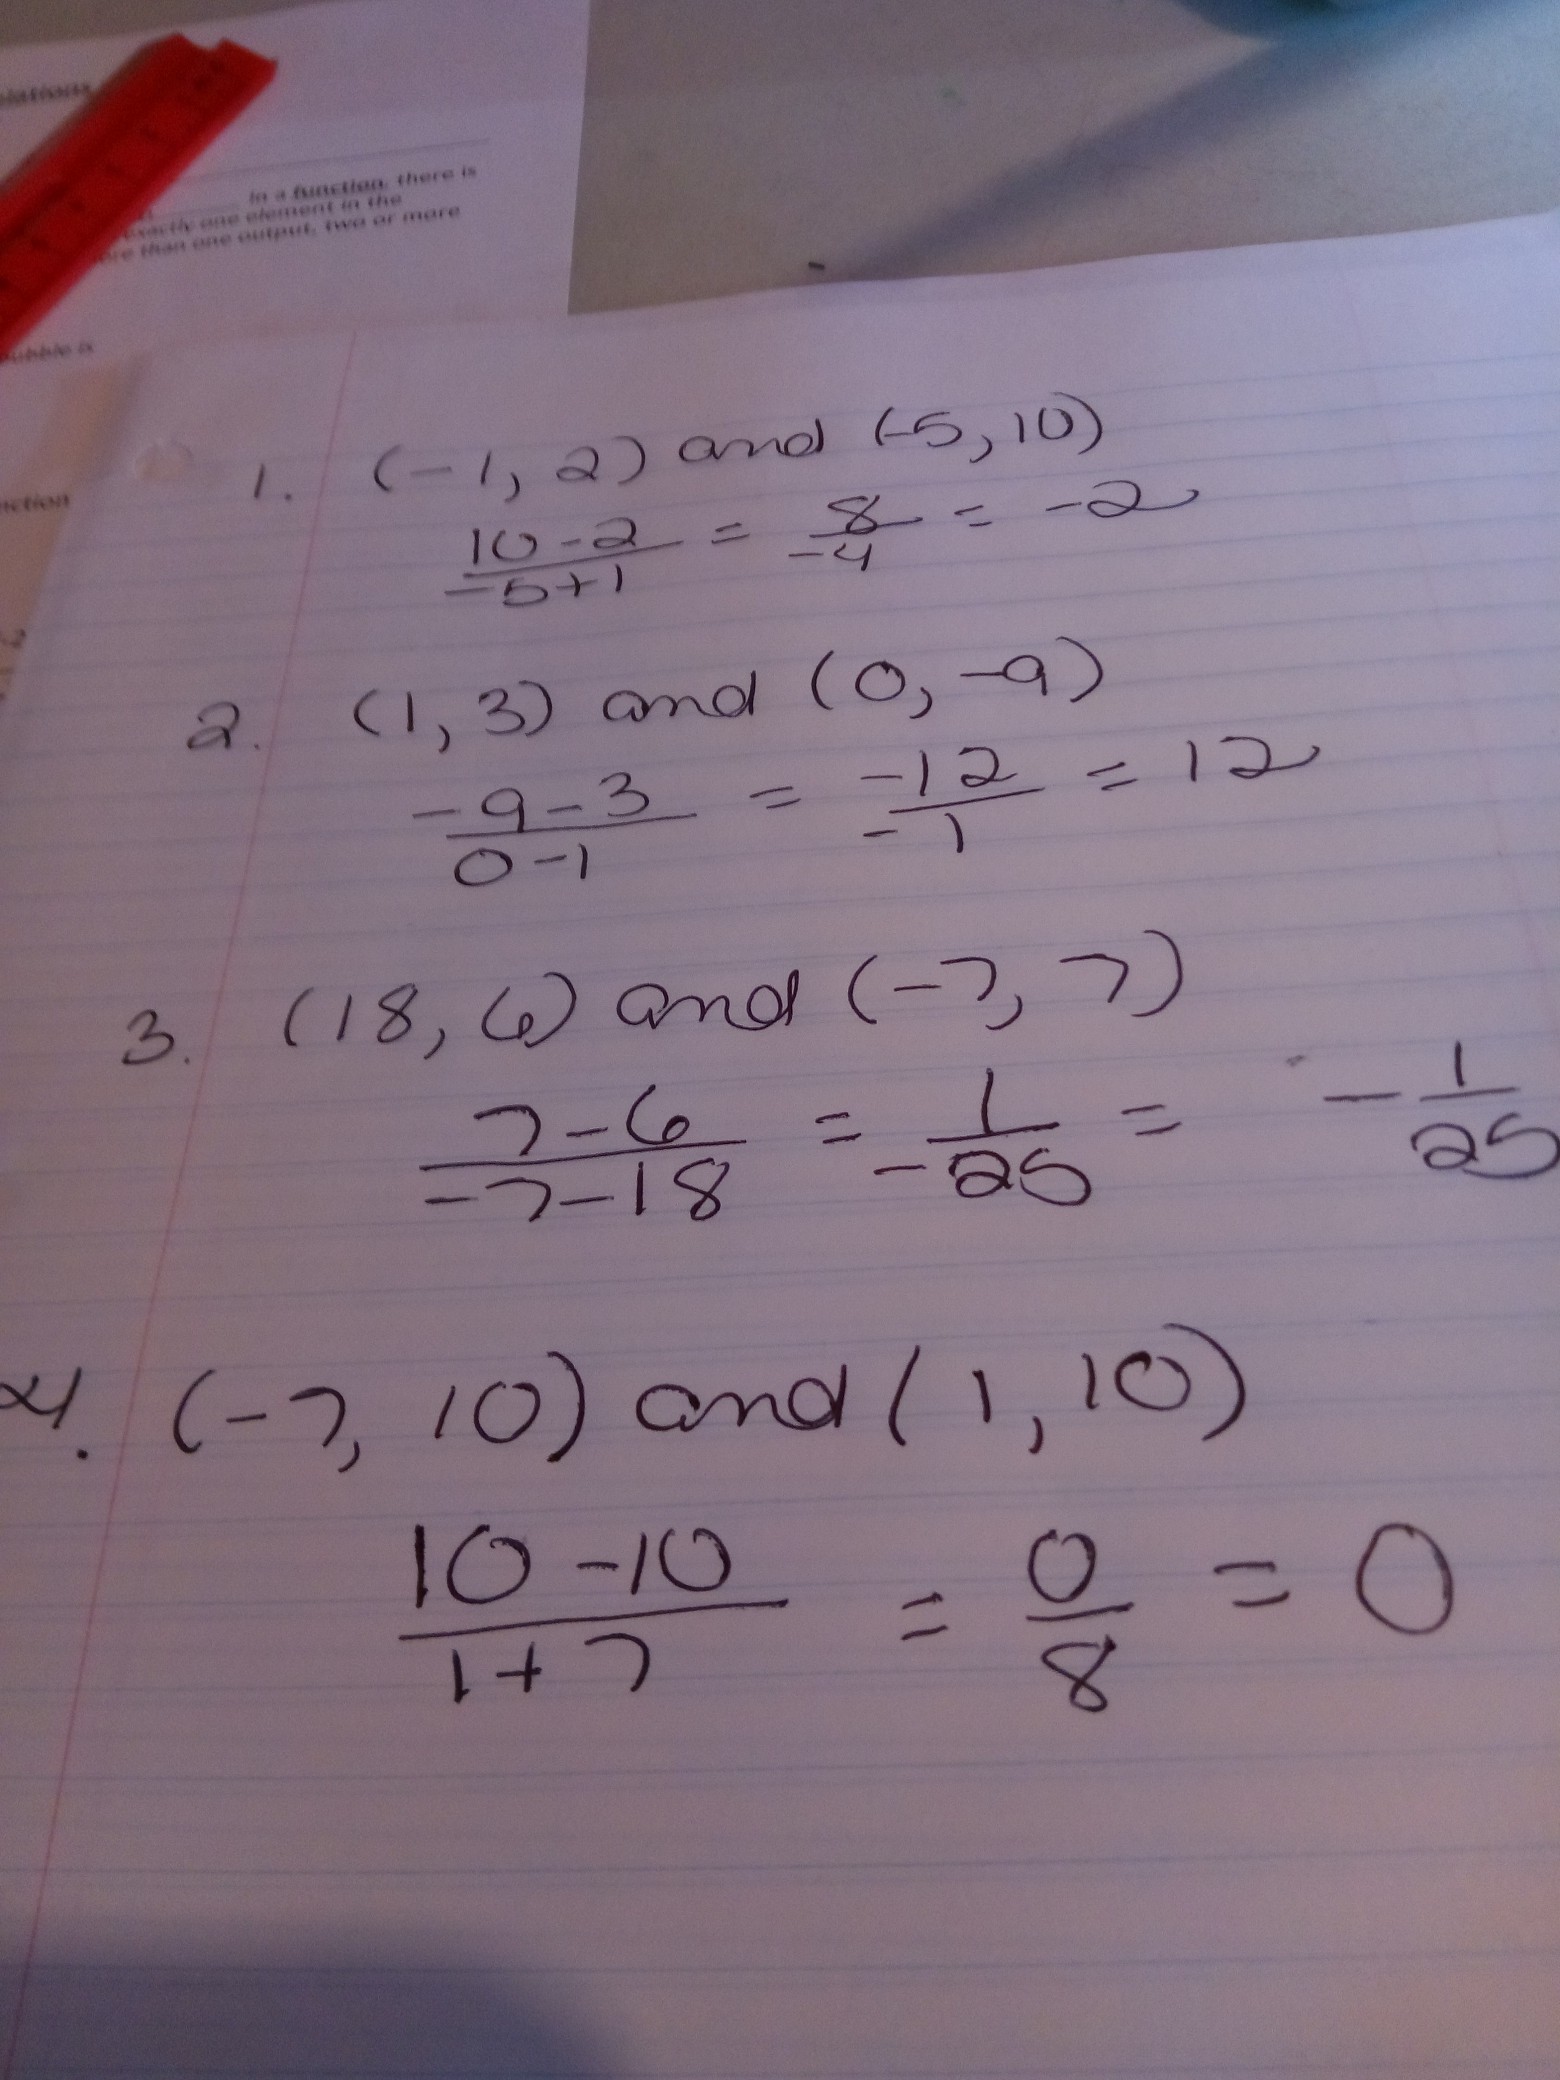 in a function, there is
exactly one element in the
than one output, two or more
bubble is
1. (-1, 2) and (-5, 10)
10-2/-5+1 = 8/-4 = -2
2. (1, 3) and (0, -9)
-9-3/0-1 = -12/-1 = 12
3. (18, 6) and (-7, 7)
7-6/-7-18 = 1/-25 = -1/25
4. (-7, 10) and (1, 10)
10-10/1+7 = 0/8 = 0